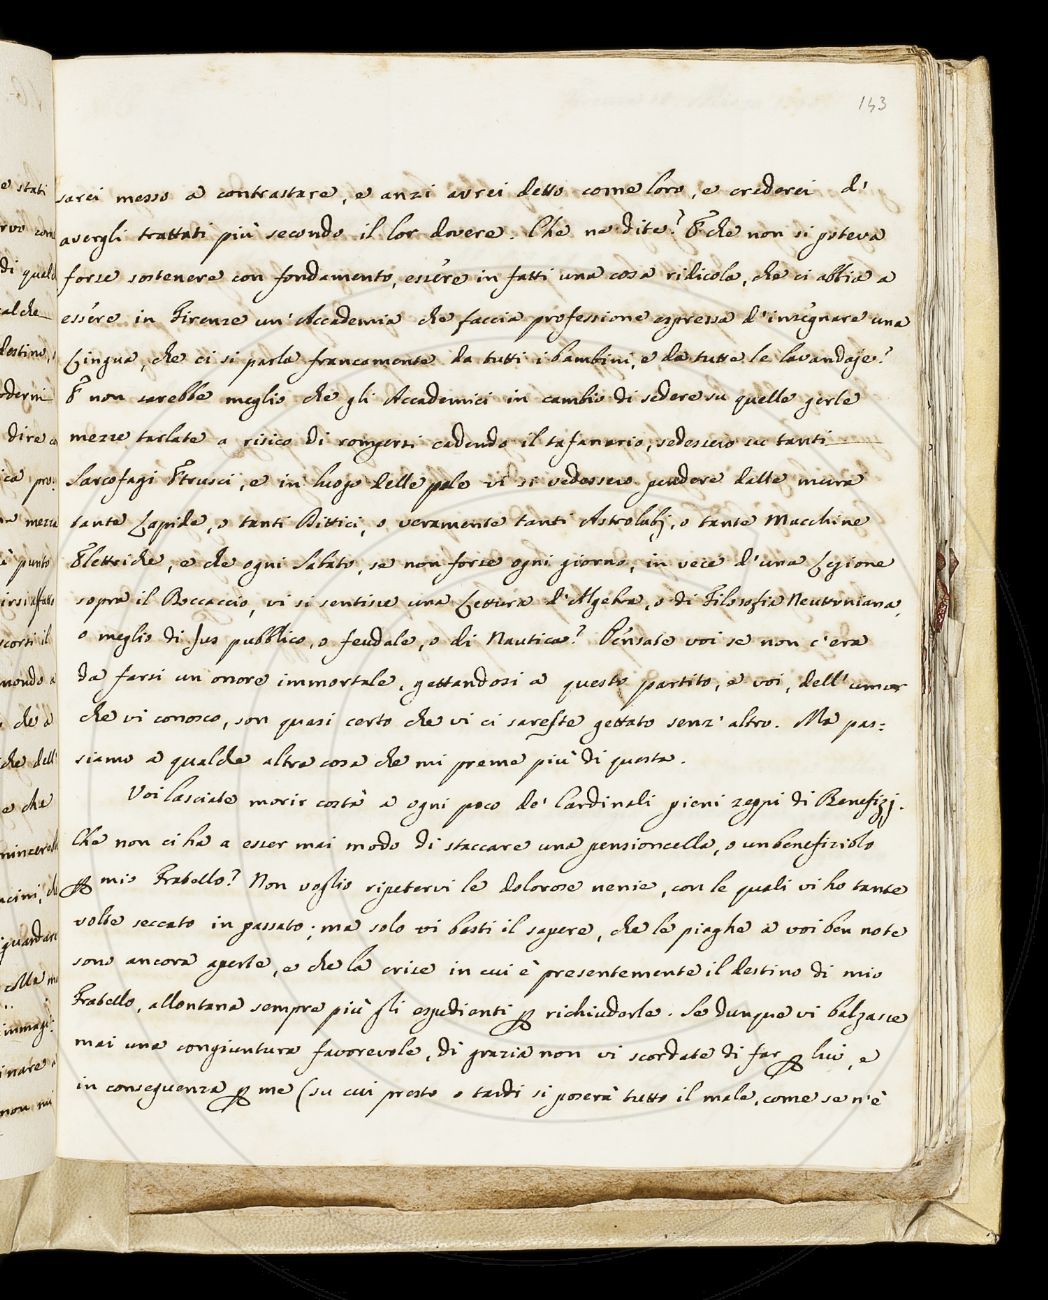 143
sarei messo a contrastare, e anzi avrei detto come loro, e crederei d'
avergli trattati più secondo il lor dovere. Che ne dite? E che non si poteva
forse sostenere con fondamento, essere in fatti una cosa ridicola, che ci abbia a
essere in Firenze un'Accademia che faccia professione espressa d'insegnare una
Lingua, che ci si parla francamente da tutti i bambini, e da tutte le lavandaje?
E non sarebbe meglio che gli Accademici in cambio di sedere su quelle gerle
mezze tarlate a risico di rompersi cadendo il tafanario, sedessero su tanti
Sarcofagi Etrusci, e in luogo delle pale vi si vedessero pendere dalle mura
tante Lapide, o tanti Dittici, o veramente tanti Astrolabj, o tante Macchine
Elettriche, e che ogni Sabato, se non forse ogni giorno, in vece d'una Lezione
sopra il Boccaccio, vi si sentisse una Lettura d'Algebra, o di Filosofia Neutoniana,
o meglio di Jus pubblico, o feudale, o di Nautica? Pensate voi se non c'era
da farsi un onore immortale, gettandosi a questo partito, e voi, dell'umor
che vi conosco, son quasi certo che vi ci sareste gettato senz'altro. Ma pas=
siamo a qualche altra cosa che mi preme più di questa.
Voi lasciate morir costà a ogni poco de' Cardinali pieni zeppi di Benefizj.
Che non ci ha a esser mai modo di staccare una pensioncella, o un benefiziolo
per mio Fratello? Non voglio ripetervi le dolorose nenie, con le quali vi ho tante
volte seccato in passato; ma solo vi basti il sapere, che le piaghe a voi ben note
sono ancora aperte, e che la crise in cui è presentemente il destino di mio
Fratello, allontana sempre più gli espedienti per richiuderle. Se dunque vi balzasse
mai una congiuntura favorevole, di grazia non vi scordate di far per lui, e
in conseguenza per me (su cui presto o tardi si poserà tutto il male, come se n'è